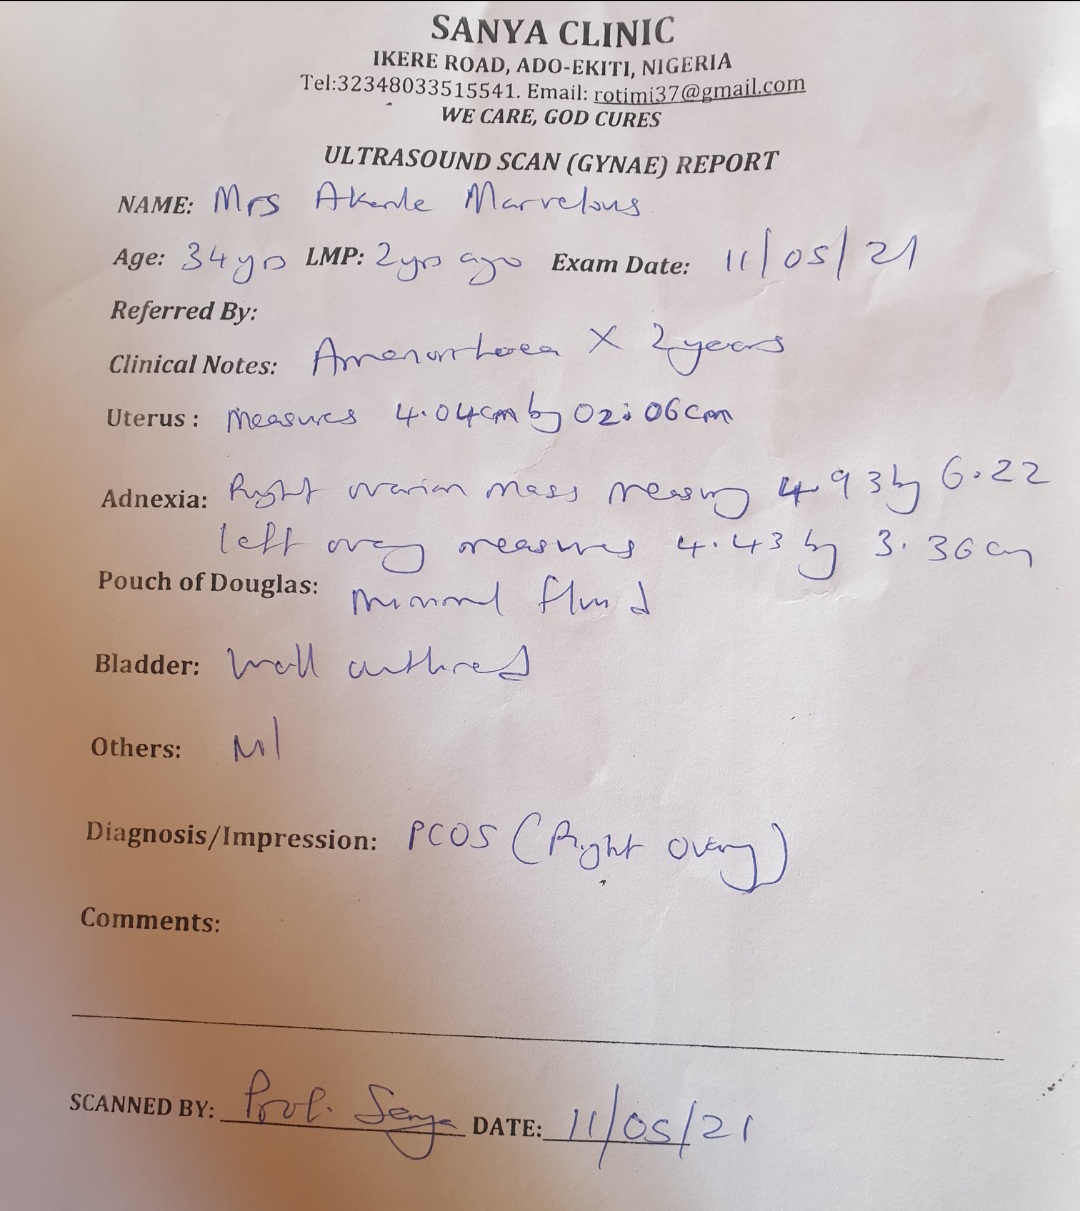 SANYA CLINIC
IKERE ROAD, ADO-EKITI, NIGERIA
Tel:32348033515541. Email: rotimi37@gmail.com
WE CARE, GOD CURES
ULTRASOUND SCAN (GYNAE) REPORT
NAME: Mrs Akande Marvelous
Age: 34yrs LMP: 2yrs ago Exam Date: 11/05/21
Referred By:
Clinical Notes: Amenorrhoea X 2years
Uterus : Measures 4.04cm by 02.06cm
Adnexia: Right ovarian mass measuring 4.93 by 6.22
left ovary measures 4.43 by 3.36cm
Pouch of Douglas: minimal fluid
Bladder: Well outlined
Others: Nil
Diagnosis/Impression: PCOS (Right Ovary)
Comments:
SCANNED BY: Prof. Sanya DATE: 11/05/21